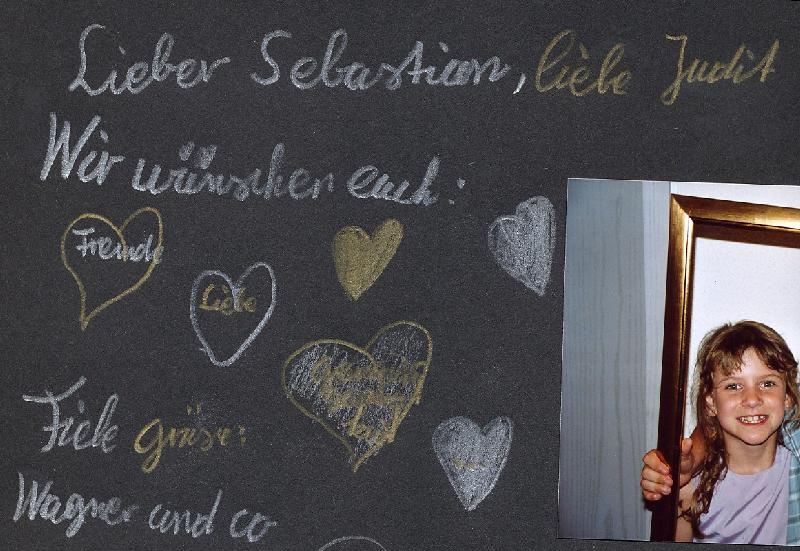 Lieber Sebastian, liebe Judit
Wir wünschen euch:
Freude
Liebe
Fiele grüse:
Wagner und co